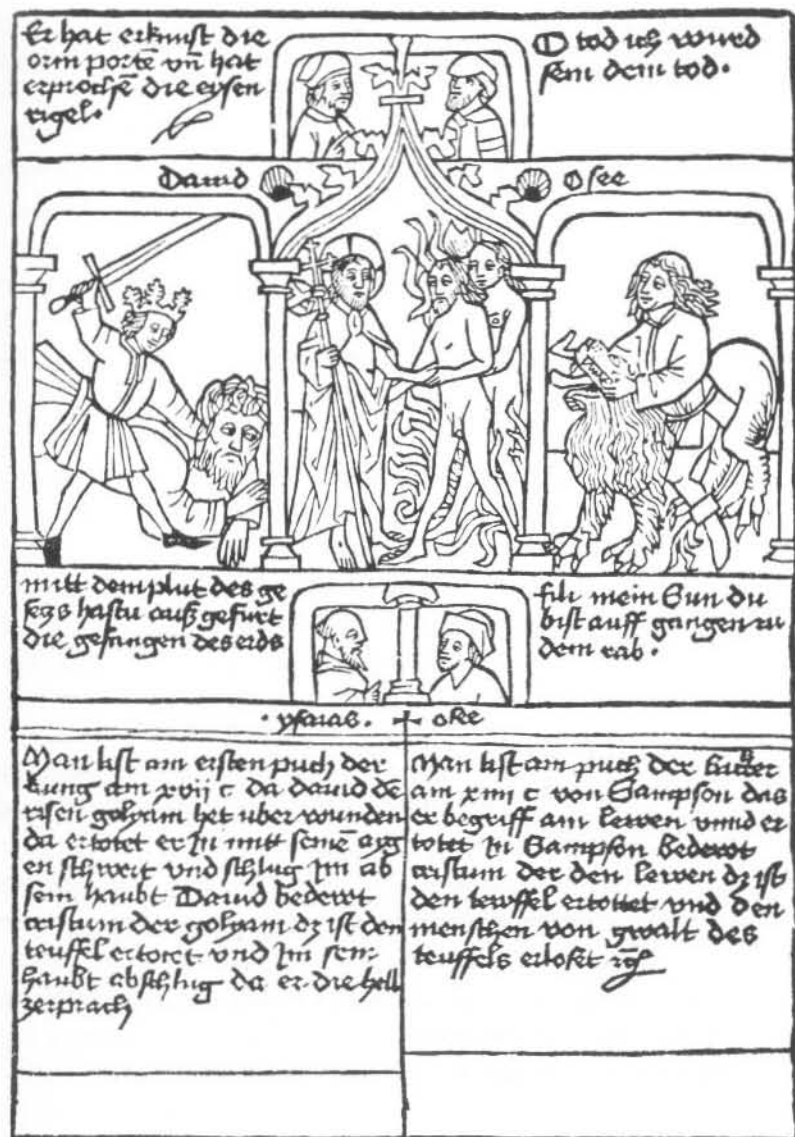 Er hat erknust die
orin portē vn̄ hat
erprochē die eysen
rigel.
O tod ich wurd
sein dein tod.
Dauid
Osee
mitt dem plut des ge
hastu auß gefurt
die gefangen des erds
fili mein Sun du
bist auff gangen zu
dem rab.
ysaias.
Man list am ersten puch der
kung am xvii c da dauid dē
risen golyam het uber wunden
da ertotet er In mitt seinē ayg
en schwert vnd schlug Im ab
sein haubt Dauid bedewt
cristum der golyam dz ist den
teuffel ertotet vnd Im sein
haubt abschlug da er die hell
zerprach
Man list am puch der
am xiiii c von Sampson das
er begriff ain lewen vnnd er
totet In Sampson bedewt
cristum der den lewen dz ist
den tewffel ertottet vnd den
menschen von gwalt des
teuffels erloset